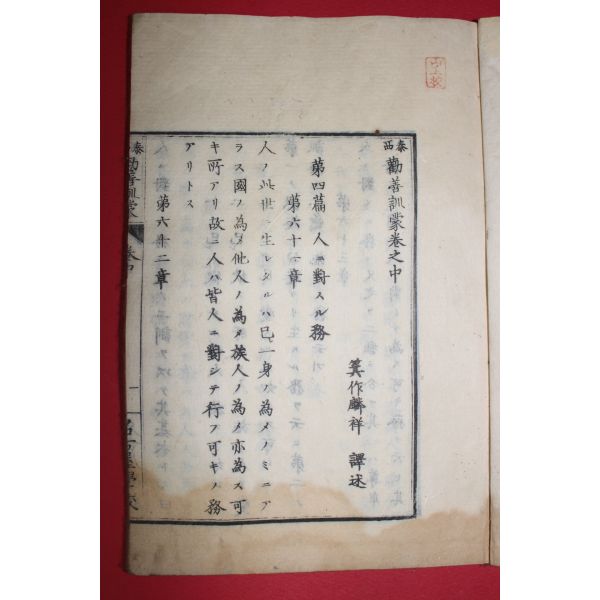 泰西 勸善訓蒙卷之中
箕作麟祥 譯述
第四篇 人ニ對スル務
第六十一章
人ノ此世ニ生レタルハ已一身ノ為メノミニア
ラス國ノ為メ他人ノ為メ族人ノ為メ亦為ス可
キ所アリ故ニ人ハ皆人ニ對シテ行フ可キノ務
アリトス
第六十二章
泰西 勸善訓蒙